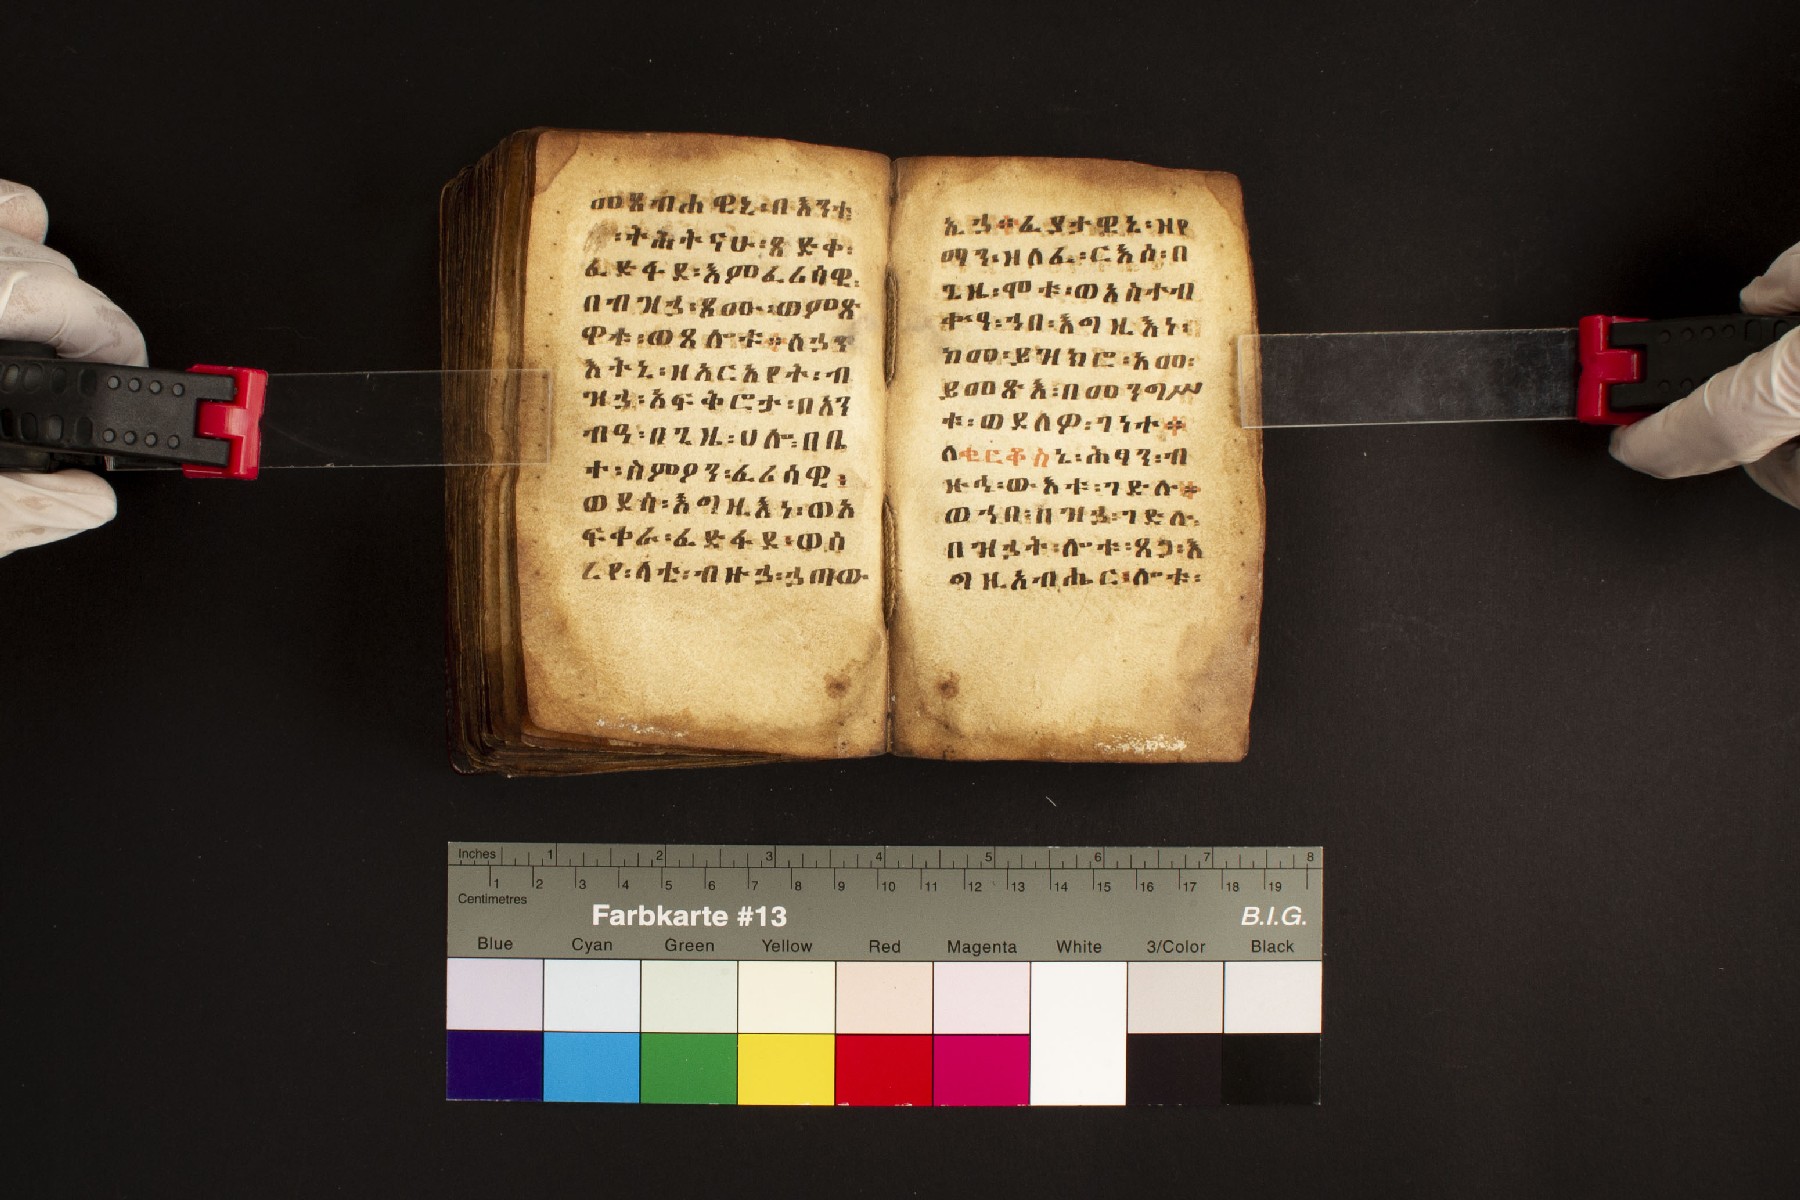 መጸብሐዊኒ፡በእንተ
፡ትሕትናሁ፡ጸድቀ፡
ፈድፋደ፡እምፈሪሳዊ፡
በብዝኃ፡ጾሙ፡ወምጽ
ዋቱ፡ወጸሎቱ፡ስኃን
እትኒ፡ዘአርአየት፡ብ
ዝኃ፡አፍቅሮታ፡በአን
ብዓ፡በጊዜ፡ሀሎ፡በቤ
ተ፡ስምዖን፡ፈሪሳዊ፡
ወደሰ፡እግዚእነ፡ወአ
ፍቀራ፡ፈድፋደ፡ወሰ
ረየ፡ላቲ፡ብዙኃ፡ኃጣው
ኢኃ፡ፈያታዊኒ፡ዘየ
ማን፡ዘሰፈ፡ርእሰ፡በ
ጊዜ፡ሞቱ፡ወአስተብ
ቍዓ፡ኀበ፡እግዚእነ፡
ከመ፡ይዝክሮ፡አመ፡
ይመጽእ፡በመንግሥ
ቱ፡ወደለዎ፡ገነተ፡
ለቂርቆስኒ፡ሕፃን፡ብ
ዙኅ፡ውእቱ፡ገድሉ፡
ወኀበ፡በዝኃ፡ገድሉ፡
በዝኃት፡ሎቱ፡ጸጋ፡እ
ግዚአብሔር፡ሎቱ፡
Inches 1 2 3 4 5 6 7 8
1 2 3 4 5 6 7 8 9 10 11 12 13 14 15 16 17 18 19
Centimetres
Farbkarte #13 B.I.G.
Blue Cyan Green Yellow Red Magenta White 3/Color Black